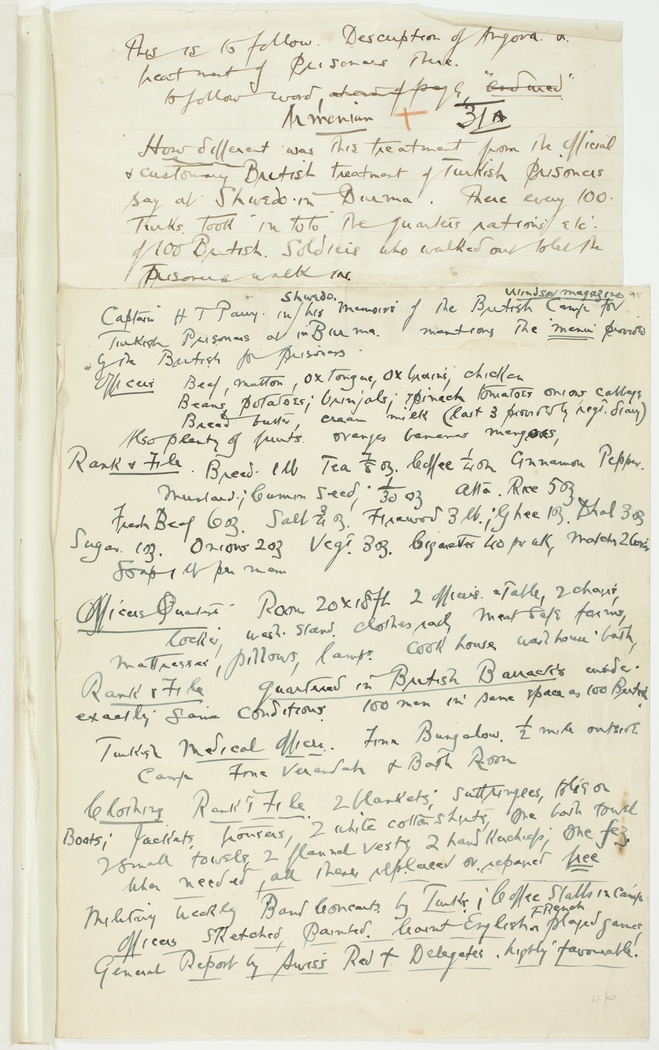 This is to follow. Description of Angora. a.
treatment of Prisoners there.
to follow word, ahead of page, "endured"
Armenian + 31A
How different was this treatment from the official
& customary British treatment of Turkish Prisoners
say at Shwebo in Burma. There every 100
Turks took "in toto" the quarters rations etc.
of 100 British. Soldiers who walked out to let the
Prisoners walk in.
Windsor Magazine
Captain H T Parry. in his Memoirs of the British Camp for
Shwebo.
Turkish Prisoners at in Burma. mentions the menu provided
by the British for prisoners.
Officers Beef, mutton, ox tongue, ox brains, chicken
Beans, potatoes; brinjals; spinach tomatoes onions cabbage
Bread butter, cream milk (last 3 provided by regt. diary)
Also plenty of fruits. oranges bananas mangoes,
Rank & File. Bread. 1 lb Tea 7/8 oz. Coffee 1/4 oz Cinnamon Pepper.
Mustard; Cumin Seed; 1/30 oz Atta. Rice 5 oz
Fresh Beef 6 oz. Salt 3/4 oz. Firewood 3 lb.; Ghee 1 oz. Dhal 3 oz
Sugar. 1 oz. Onions 2 oz Vegt. 3 oz. Cigarettes 40 pr wk, Matches 2 boxes
Soap 1 lb per man
Officers Quarters. Room 20 x 18 ft 2 officers. a Table, 2 chairs,
locker, wash. stand. clothes rack, meat safe
mattresses, pillows, lamps. Cook house wash house bath,
Rank & File quartered in British Barracks under
exactly same conditions. 100 men in same space as 100 British
Turkish Medical Officer. Fine Bungalow. 1/2 mile outside
Camp Fine Verandah & Bath Room
Clothing Rank & File. 2 blankets;
Boots; Jackets, trousers, 2 white cotton shirts, One bath towel
2 small towels, 2 flannel vests, 2 handkerchiefs; One fez
When needed, all these replaced or repaired free
Military weekly Band Concerts by Turks; Coffee Stalls in Camp
French
Officers sketched, Painted. learnt English & played games,
General Report by Swiss Red + Delegates. highly favourable.